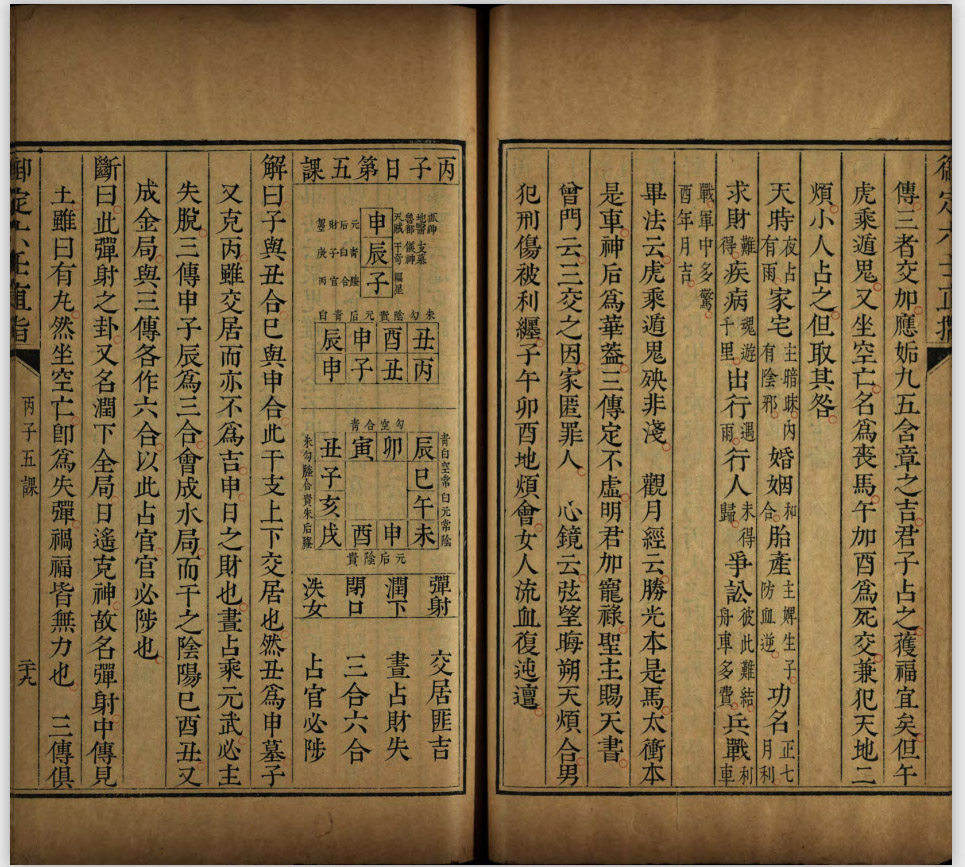 傳三者交加應姤九五含章之吉君子占之獲福宜矣但午
虎乘遁鬼又坐空亡名爲喪馬午加酉爲死交兼犯天地二
煩小人占之但取其咎
天時夜占有雨家宅主暗昧内有陰邪婚姻和合胎產主婢生子防血逆功名正七月利
求財難得疾病魂遊千里出行遇雨行人未得歸爭訟彼此難結舟車多費兵戰利車
戰軍中多驚酉年月吉
畢法云虎乘遁鬼殃非淺 觀月經云勝光本是馬太衝本
是車神后爲華蓋三傳定不虛明君加寵祿聖主賜天書
曾門云三交之因家匿罪人 心鏡云弦望晦朔天煩合男
犯刑傷被利纏子午卯酉地煩會女人流血復迍邅
丙子日第五課
申
辰
子
未勾陰貴元后青白
丑酉申辰
丙丑子申
勾空合青
辰卯寅丑
巳子
午亥
未申酉戌
元后陰貴
彈射
潤下
閉口
泆女
交居匪吉
晝占財失
三合六合
占官必陟
解曰子與丑合巳與申合此干支上下交居也然丑爲申墓子
又克丙雖交居而亦不爲吉申日之財也晝占乘元武必主
失脫三傳申子辰爲三合會成水局而干之陰陽巳酉丑又
成金局與三傳各作六合以此占官官必陟也
斷曰此彈射之卦又名潤下全局日遙克神故名彈射中傳見
土雖曰有丸然坐空亡卽爲失彈禍福皆無力也 三傳俱
丙子五課